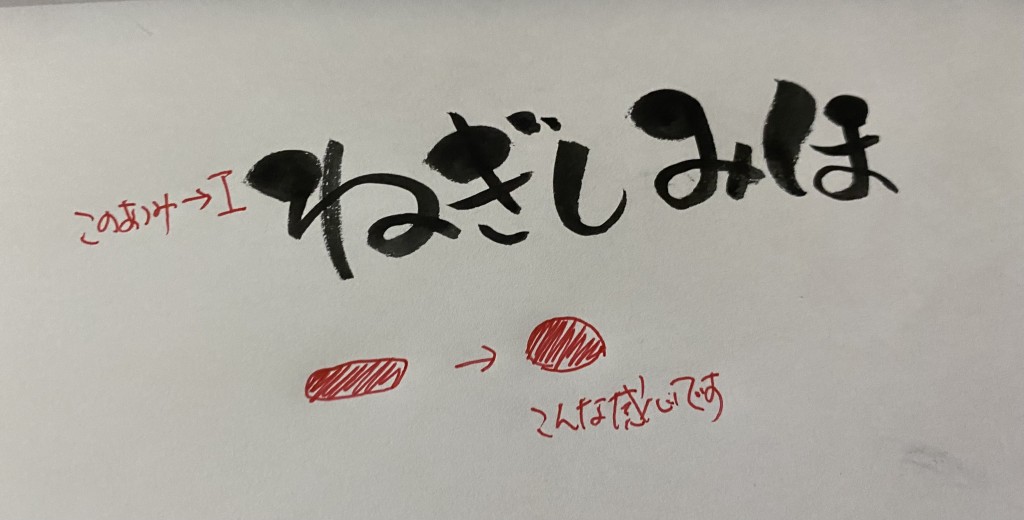 ねぎしみほ
このあつみ→
→
こんな感じです